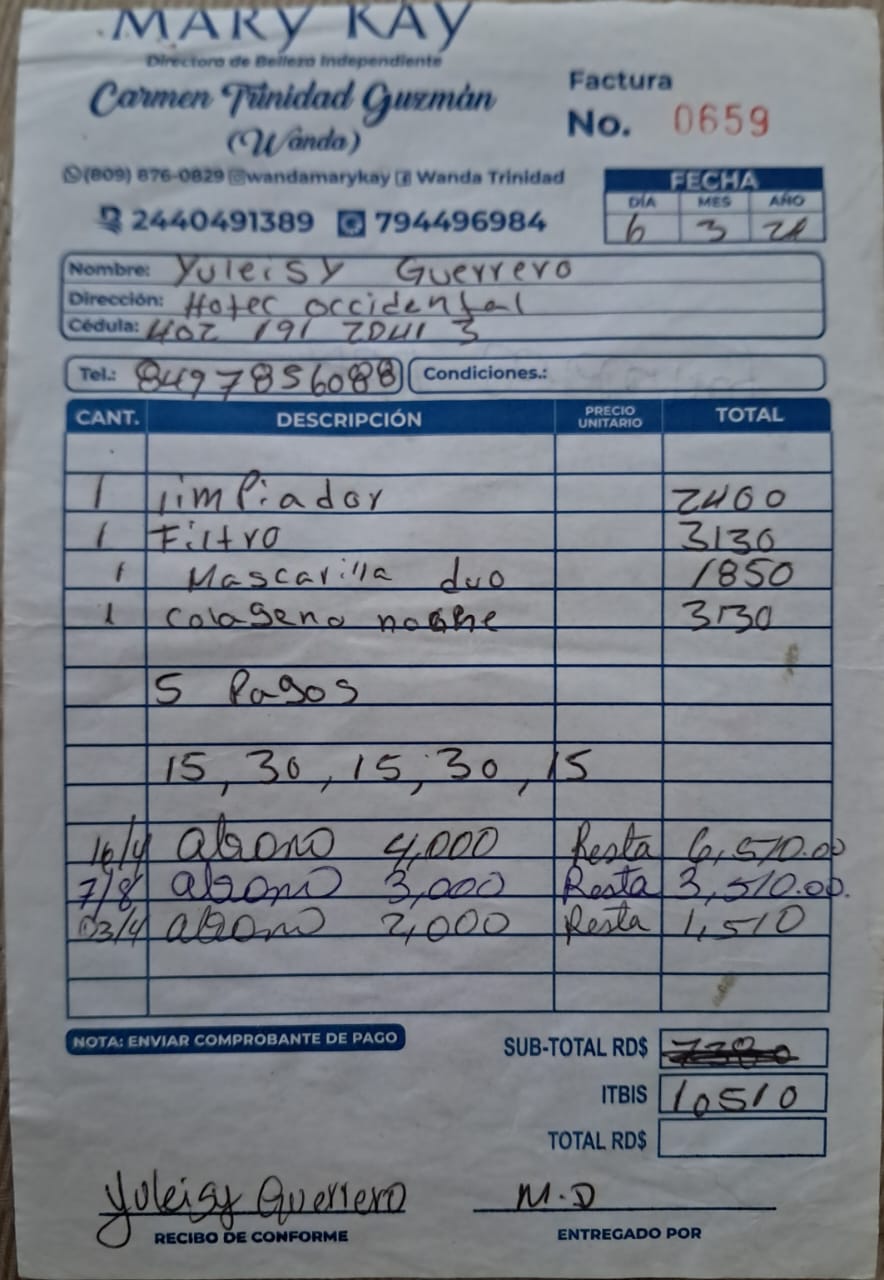 MARY KAY
Directora de Belleza Independiente
Carmen Trinidad Guzmán
(Wanda)
Factura
No. 0659
(809) 876-0829 wandamarykay Wanda Trinidad
2440491389 794496984
FECHA
DÍA MES AÑO
6 3 24
Nombre: Yuleisy Guerrero
Dirección: Hotec occidental
Cédula: 402 191 2041 3
Tel.: 8497856088 Condiciones.:
CANT. DESCRIPCIÓN PRECIO UNITARIO TOTAL
1 limpiador 2400
1 Filtro 3130
1 Mascarilla duo 1850
1 Colageno noche 3130
5 Pagos
15, 30, 15, 30, 15
16/4 abono 4,000 Resta 6,510.00
7/8 abono 3,000 Resta 3,510.00.
03/4 abono 2,000 Resta 1,510
NOTA: ENVIAR COMPROBANTE DE PAGO
SUB-TOTAL RD$ 7380
ITBIS 10510
TOTAL RD$
Yuleisy Guerrero M.D
RECIBO DE CONFORME ENTREGADO POR